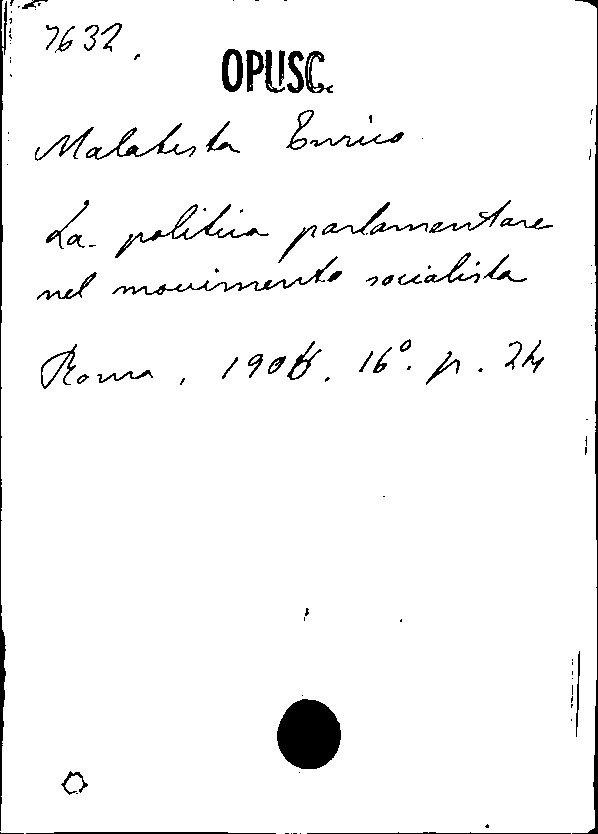 7632.
OPUSC.
Malatesta Enrico
La politica parlamentare
nel movimento socialista
Roma, 16°. p. 24